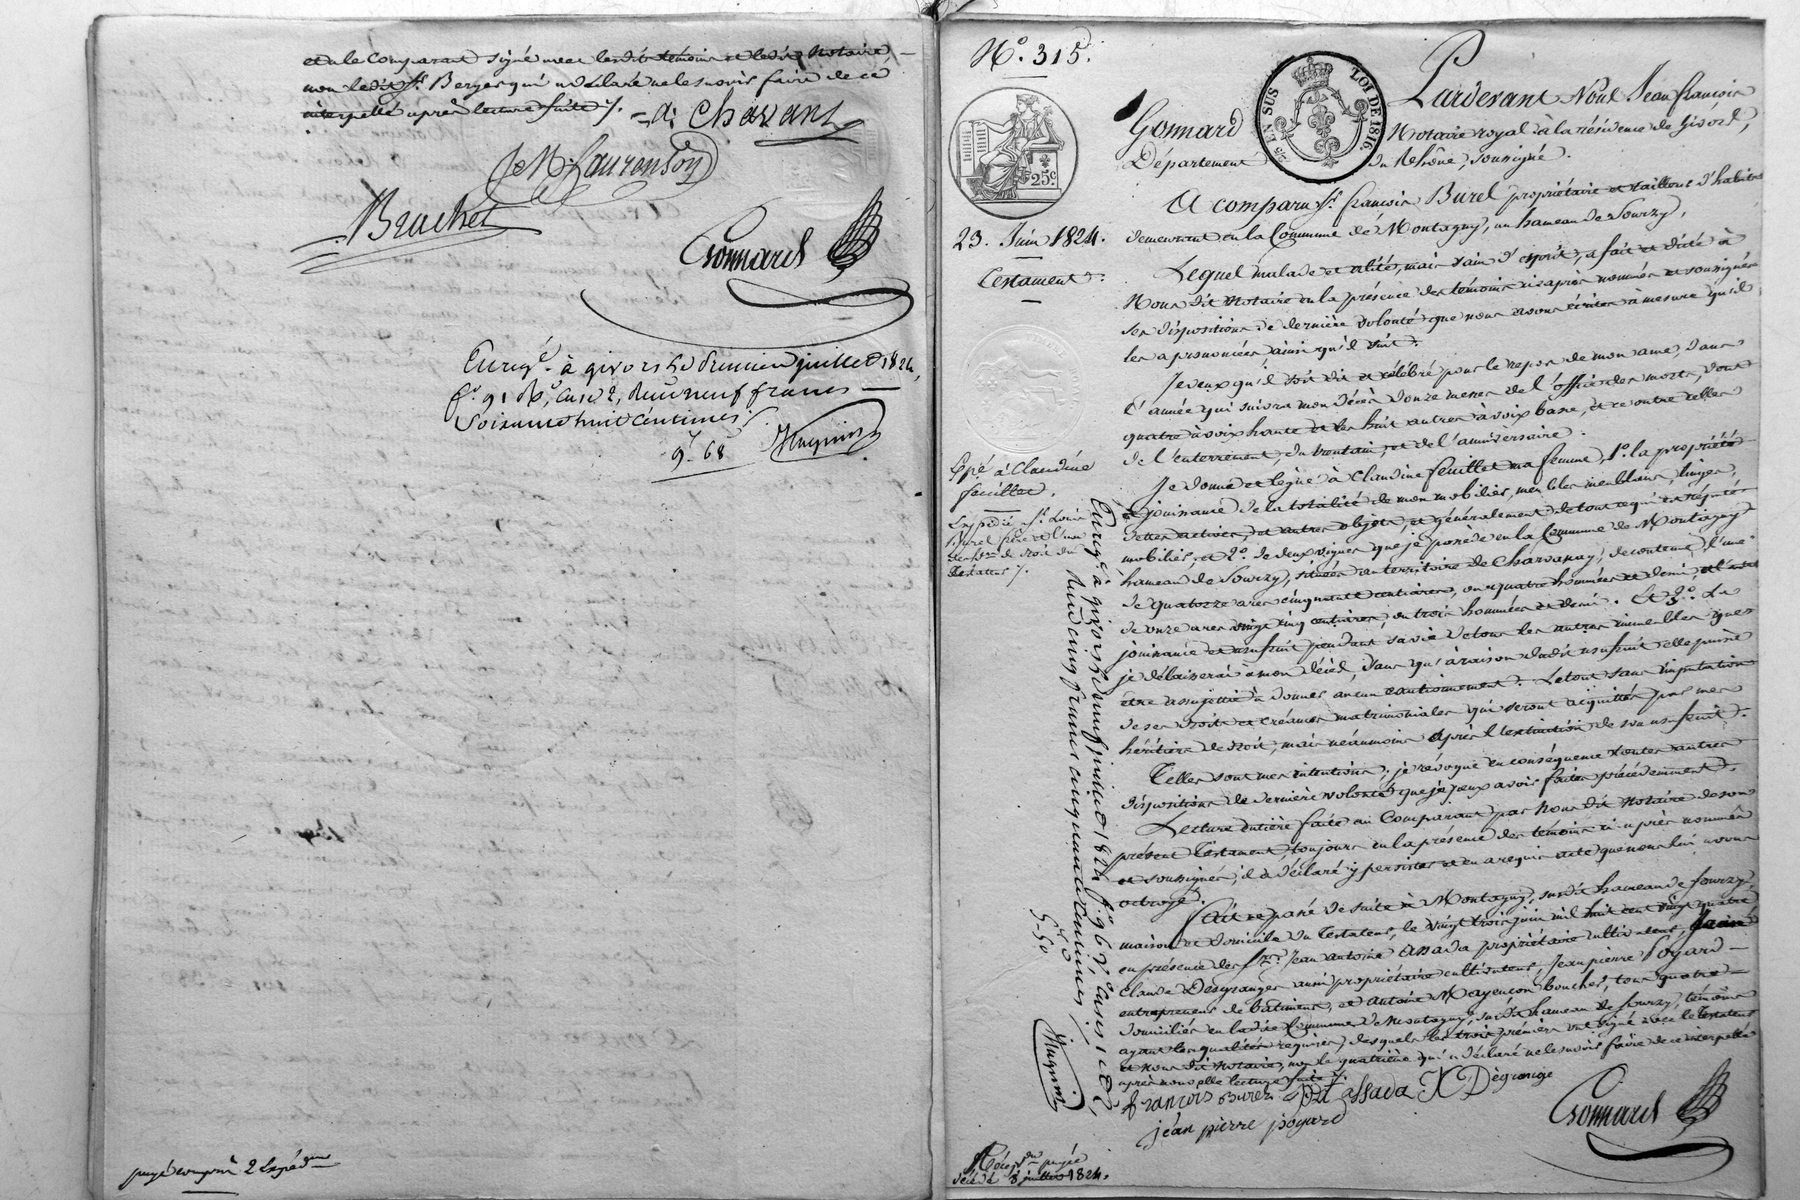 et le Comparant signé avec lesdits témoins et ledit Notaire
non ledit Sr. Berger qui a déclaré ne le savoir faire de ce
interpellé après lecture faite /.
Chavant
JM Laurenson
Brachet
Gonnard
Enregé. à givors le premier juillet 1824,
fo. 91 Ro, case 2, Reçu neuf francs
Soixante huit Centimes /.
9f. 68
Huguin
payé compris 2 Expédons
No. 315.
25c
5/5 EN SUS LOI DE 1816.
23. Juin 1824.
Testament
Expé. à Claudine
feuillet.
Expédié Sr. Louis
Burel père et l'un
des hers. de droit du
testateur /.
Pardevant Nous Jean françois
Gonnard Notaire royal à la résidence de Givors,
Département du Rhône, soussigné.
A comparu Sr. françois Burel propriétaire et tailleur d'habits
demeurant en la Commune de Montagny, au hameau de Sourzy,
Lequel malade et alité, mais sain d'esprit, a fait et dicté à
Nous dit Notaire en la présence des témoins ci après nommés et soussignés
ses dispositions de dernière volonté que nous avons écrites à mesure qu'il
les a prononcées ainsi qu'il suit.
Je veux qu'il soit dit et célébré pour le repos de mon ame, dans
l'année qui suivra mon décès douze messes de l'office des morts, dont
quatre à voix haute et les huit autres à voix basse, et ce outre celles
de l'enterrement, du trentain, et de l'anniversaire.
Je donne et legue à Claudine feuillet ma femme, 1o. la propriété
et jouissance de la totalité de mon mobilier, meubles meublans, linges,
dettes actives, et autres objets, et généralement de tout ce qui est réputé
mobilier, et 2o. de deux vignes que je possède en la Commune de Montagny
hameau de Sourzy, situées au territoire de Charvanay, de contenue, l'une
de quatorze ares cinquante centiares, ou quatre hommées et demi, et l'autre
de onze ares vingt cinq centiares, ou trois hommées et demi. Et 3o. La
jouissance et usufruit pendant sa vie de tous les autres immeubles que
je délaisserai à mon décès, sans qu'à raison dudit usufruit elle puisse
être assujettie à donner aucun cautionnement. Le tout sans imputation
de ses droits et créances matrimoniales qui seront acquittés par mes
héritiers de droit, mais néanmoins après l'extinction de son usufruit.
Telles sont mes intentions; je révoque en conséquence toutes autres
dispositions de dernière volonté que je peux avoir faites précédemment.
Lecture entière faite au Comparant par Nous dit Notaire de son
présent Testament, toujours en la présence des témoins ci-après nommés
et soussignés, il a déclaré y persister et en a requis acte que nous lui avons
octroyé.
Fait et passé de suite à Montagny, susdit hameau de Sourzy,
maison et domicile du Testateur, le vingt trois juin mil huit cent vingt quatre
en présence des Srs. Jean antoine Assada propriétaire cultivateur,
Claude Desgranges aussi propriétaire cultivateur, Jean pierre Poyard
entrepreneur de bâtimens, et antoine Mayençon boucher, tous quatre
domiciliés en ladite Commune de Montagny, susdit hameau de Sourzy, témoins
ayant les qualités requises, desquels les trois premiers ont signé avec le testateur
et Nous dit Notaire, non le quatrième qui a déclaré ne le savoir faire de ce interpellé
après nouvelle lecture faite /.
françois Burel Assada Dégrange
jean pierre poyard
Gonnard
Enregé. à givors le neuf juillet 1824, fo. 96 Vo. case 1ere,
Reçu cinq francs cinquante centimes /.
5f. 50c
Huguin
payée
décédé 8 juillet 1824.